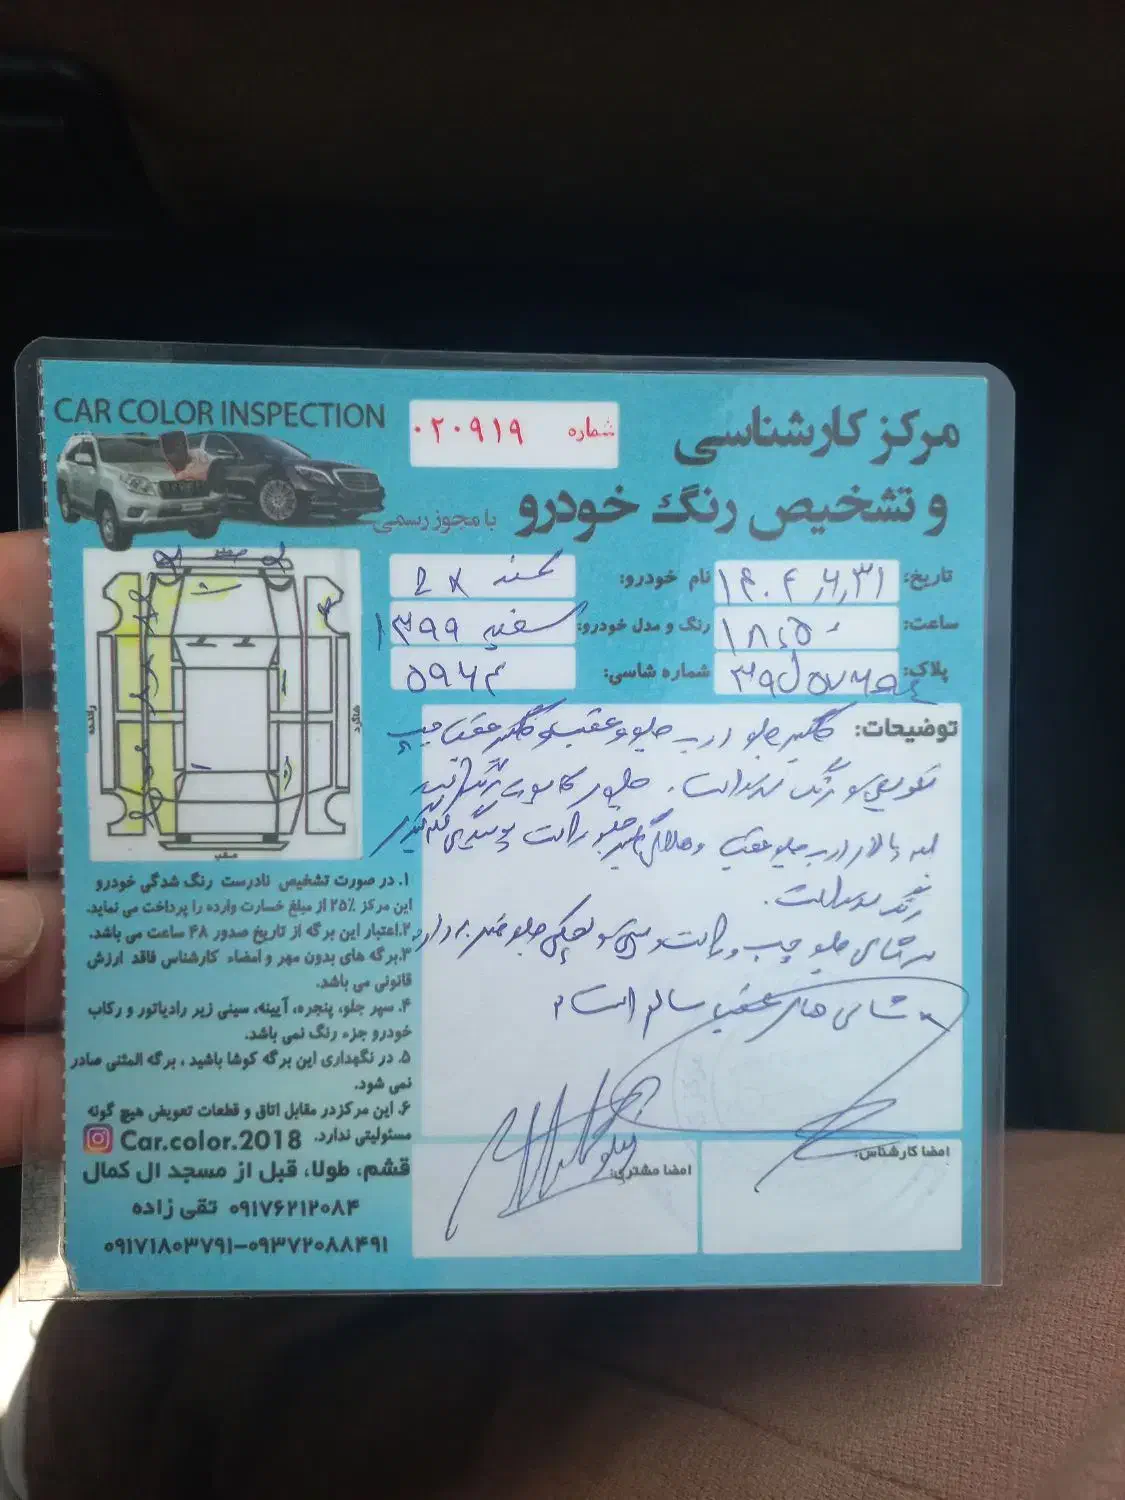 CAR COLOR INSPECTION
شماره ۰۲۰۹۱۹
مرکز کارشناسی
و تشخیص رنگ خودرو
با مجوز رسمی
تاریخ:
نام خودرو: سمند LX
ساعت: ۱۸:۵۰
رنگ و مدل خودرو: سفید ۱۳۹۹
پلاک:
شماره شاسی: ۵۹۶۴
جلو
راننده
شاگرد
عقب
توضیحات: گلگیر جلو درب جلو و عقب و گلگیر عقب چپ
تعویض و رنگ شده است.
درب جلو عقب جلو راست
رنگ شده است.
جلو چپ و راست و سینی جلو ضربه دارد
شاسی های عقب سالم است
۱. در صورت تشخیص نادرست رنگ شدگی خودرو
این مرکز ۲۵٪ از مبلغ خسارت وارده را پرداخت می نماید.
۲. اعتبار این برگه از تاریخ صدور ۴۸ ساعت می باشد.
۳. برگه های بدون مهر و امضاء کارشناس فاقد ارزش
قانونی می باشد.
۴. سپر جلو، پنجره، آیینه، سینی زیر رادیاتور و رکاب
خودرو جزء رنگ نمی باشد.
۵. در نگهداری این برگه کوشا باشید ، برگه المثنی صادر
نمی شود.
۶. این مرکز در مقابل اتاق و قطعات تعویض هیچ گونه
مسئولیتی ندارد.
Car.color.2018
قشم، طولا، قبل از مسجد ال کمال
۰۹۱۷۶۲۱۲۰۸۴ تقی زاده
۰۹۱۷۱۸۰۳۷۹۱-۰۹۳۷۲۰۸۸۴۹۱
امضا کارشناس:
امضا مشتری: